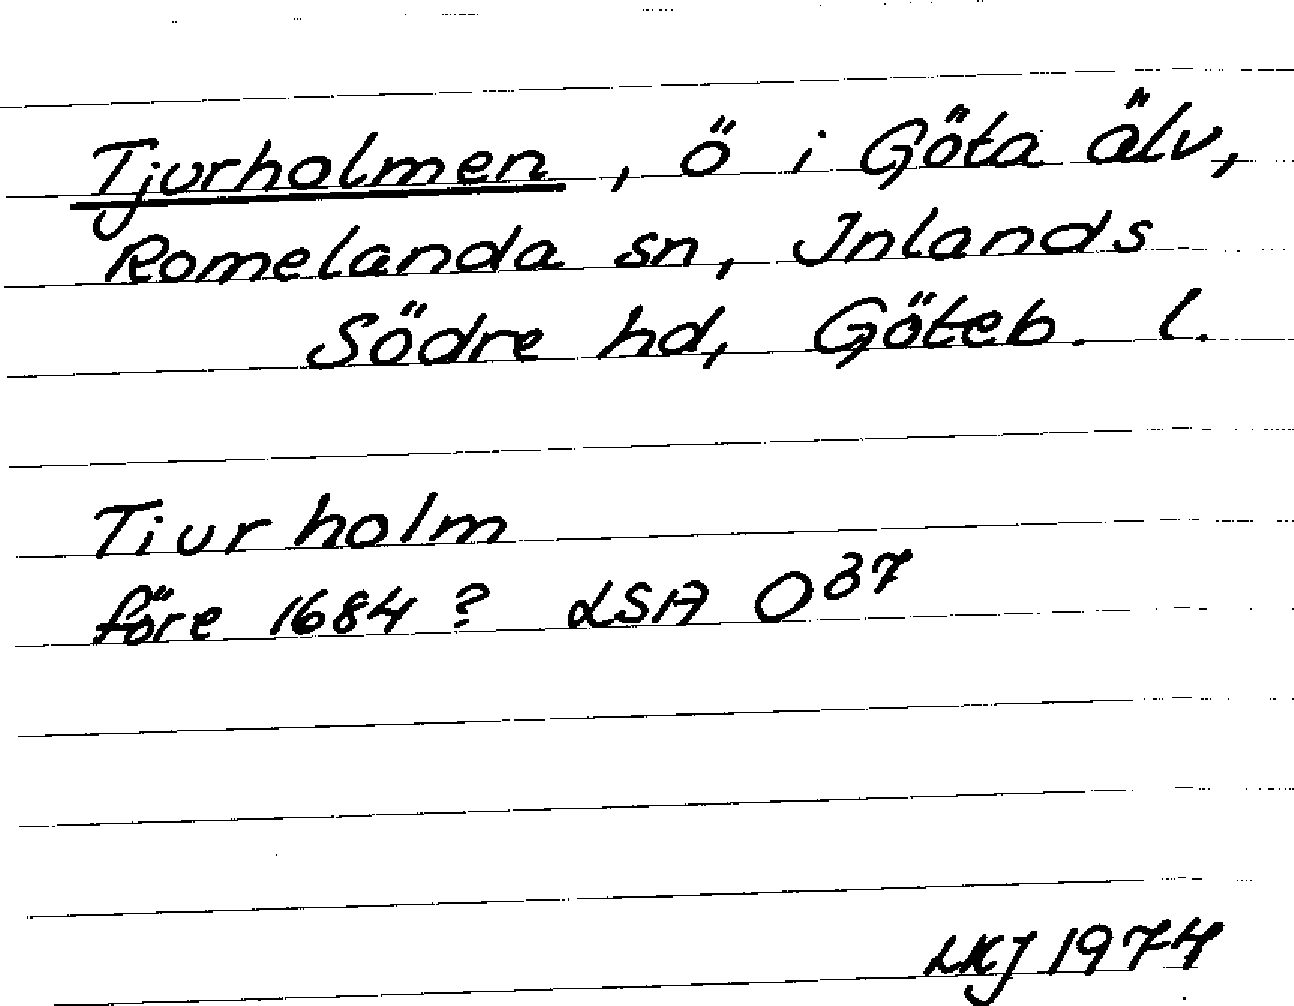 Tjurholmen, ö i Göta älv,
Romelanda sn, Inlands
Södre hd, Göteb. l.
Tiur holm
före 1684? LSA O37
LKJ 1974